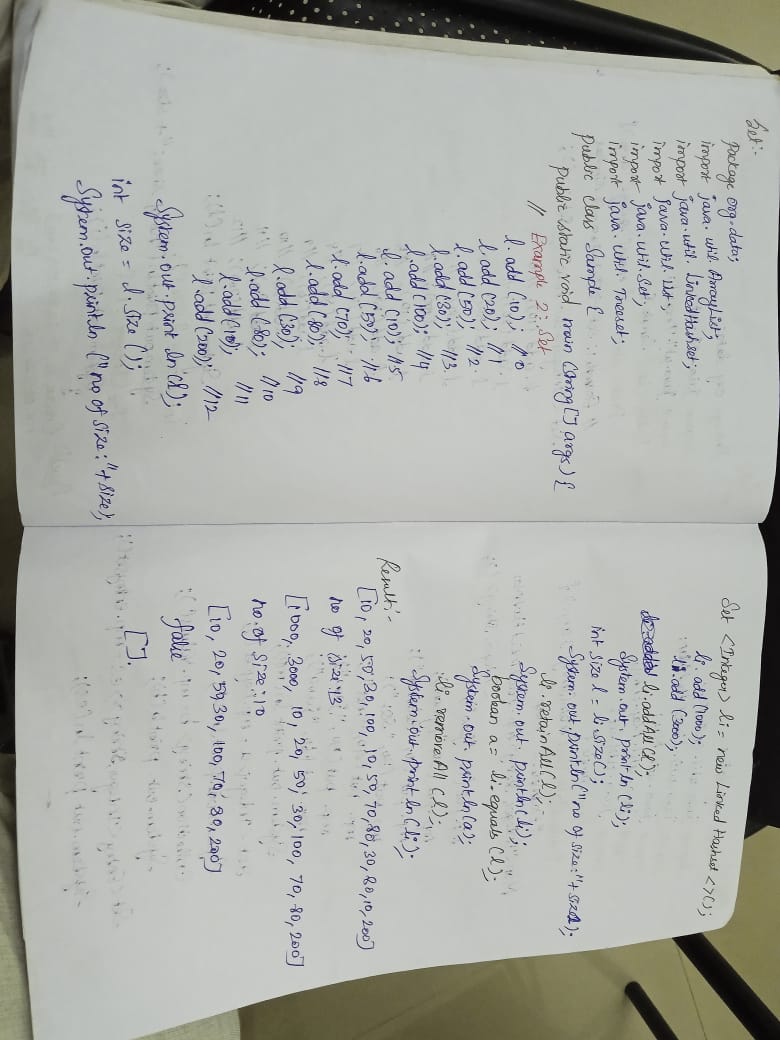 Set:-
Package org.data;
import java.util.ArrayList;
import java.util.LinkedHashset;
import java.util.List;
import java.util.Set;
import java.util.Treeset;
public class Sample {
public static void main (string [] args) {
// Example 2:- Set
l.add (10); //0
l.add (20); //1
l.add (50); //2
l.add (30); //3
l.add (100); //4
l.add (10); //5
l.add (50); //6
l.add (70); //7
l.add (80); //8
l.add (30); //9
l.add (80); //10
l.add (10); //11
l.add (200); //12
System.out.print ln (l);
int size = l.size ();
System.out.println ("no of size:"+size);
Set <Integer> li = new Linked Hashset <>();
li.add (1000);
li.add (3000);
li.addAll (l);
System.out.print ln (li);
int size l = li.size();
System.out.println ("no of size:"+ size1);
li.retainAll (l);
System.out.println (li);
boolean a = li.equals (l);
System.out.println (a);
li.remove All (l);
System.out.print ln (li);
Result:-
[10, 20, 50, 30, 100, 10, 50, 70, 80, 30, 80, 10, 200]
no of size:13
[1000, 3000, 10, 20, 50, 30, 100, 70, 80, 200]
no.of size:10
[10, 20, 50, 30, 100, 70, 80, 200]
false
[].